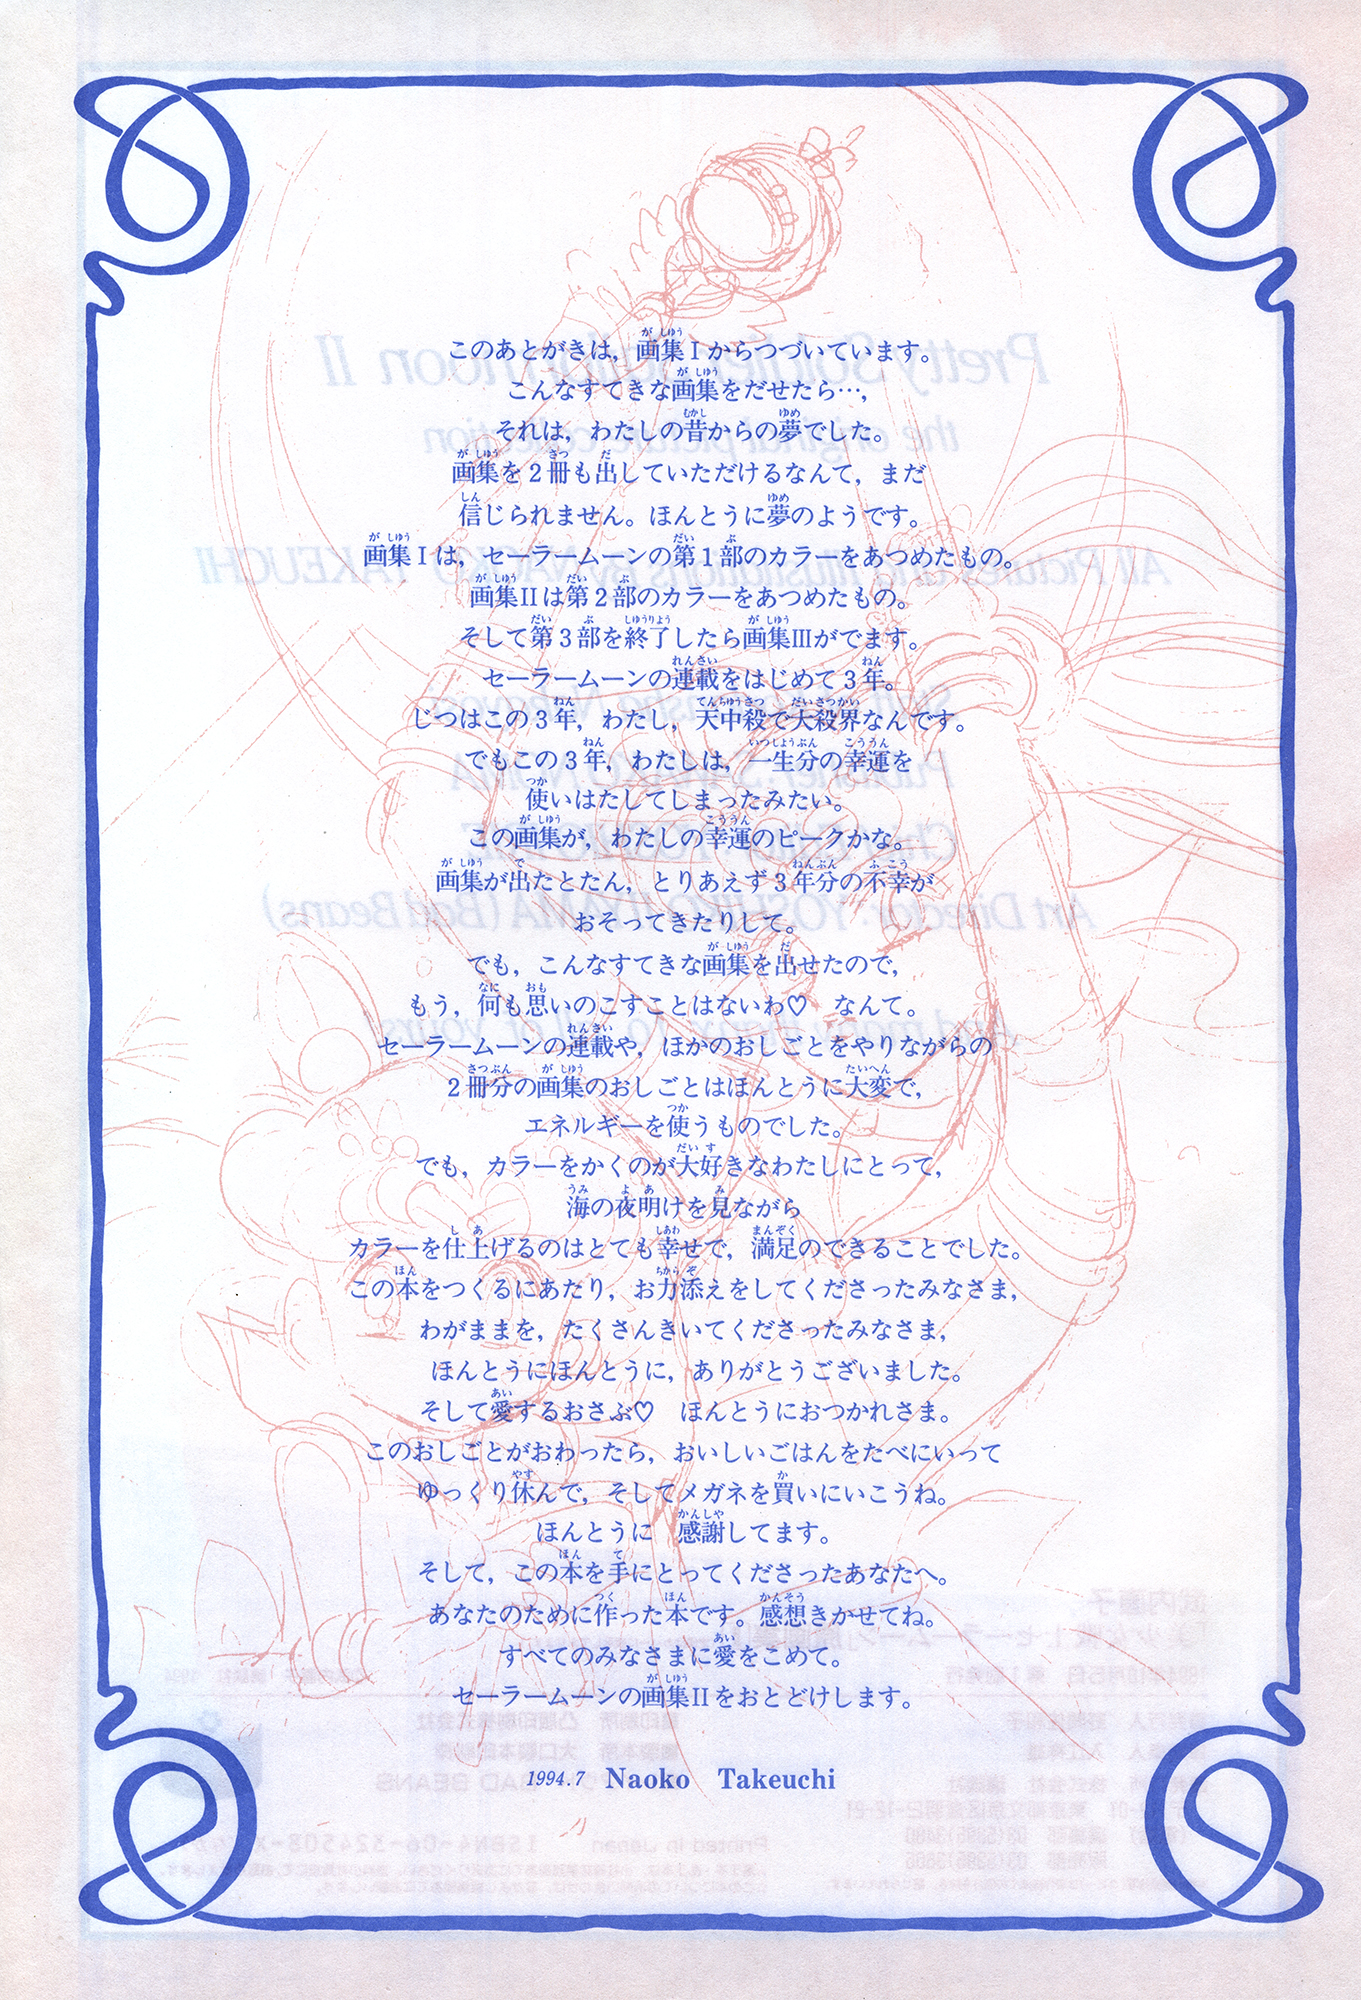 このあとがきは，画集Ⅰからつづいています。
こんなすてきな画集をだせたら…，
それは，わたしの昔からの夢でした。
画集を２冊も出していただけるなんて，まだ
信じられません。ほんとうに夢のようです。
画集Ⅰは，セーラームーンの第１部のカラーをあつめたもの。
画集Ⅱは第２部のカラーをあつめたもの。
そして第３部を終了したら画集Ⅲがでます。
セーラームーンの連載をはじめて３年。
じつはこの３年，わたし，天中殺で大殺界なんです。
でもこの３年，わたしは，一生分の幸運を
使いはたしてしまったみたい。
この画集が，わたしの幸運のピークかな。
画集が出たとたん，とりあえず３年分の不幸が
おそってきたりして。
でも，こんなすてきな画集を出せたので，
もう，何も思いのこすことはないわ♡　なんて。
セーラームーンの連載や，ほかのおしごとをやりながらの
２冊分の画集のおしごとはほんとうに大変で，
エネルギーを使うものでした。
でも，カラーをかくのが大好きなわたしにとって，
海の夜明けを見ながら
カラーを仕上げるのはとても幸せで，満足のできることでした。
この本をつくるにあたり，お力添えをしてくださったみなさま，
わがままを，たくさんきいてくださったみなさま，
ほんとうにほんとうに，ありがとうございました。
そして愛するおさぶ♡　ほんとうにおつかれさま。
このおしごとがおわったら，おいしいごはんをたべにいって
ゆっくり休んで，そしてメガネを買いにいこうね。
ほんとうに　感謝してます。
そして，この本を手にとってくださったあなたへ。
あなたのために作った本です。感想きかせてね。
すべてのみなさまに愛をこめて。
セーラームーンの画集Ⅱをおとどけします。
1994.7　Naoko　Takeuchi